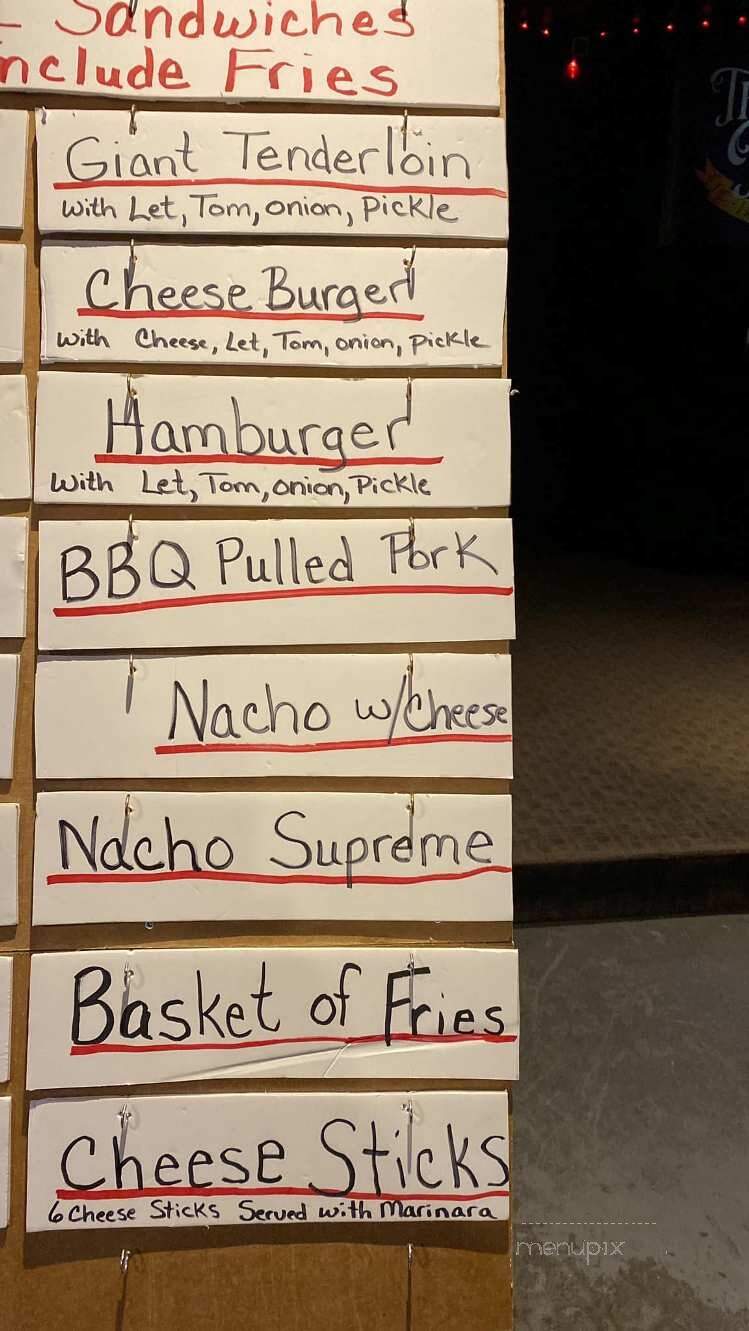 Sandwiches
Include Fries
Giant Tenderloin
with Let, Tom, onion, Pickle
Cheese Burger
with Cheese, Let, Tom, onion, pickle
Hamburger
with Let, Tom, onion, Pickle
BBQ Pulled Pork
Nacho w/Cheese
Nacho Supreme
Basket of Fries
Cheese Sticks
6 Cheese Sticks Served with Marinara
menupix